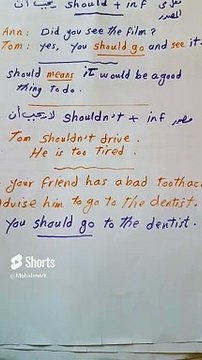 should + inf يجب أن
المصدر
Ann: Did you see the film?
Tom: yes, you should go and see it.
should means it would be a good
thing to do.
لا يجب أن shouldn't + inf مصدر
Tom shouldn't drive.
He is too tired.
your friend has a bad toothac
dvise him to go to the dentist.
You should go to the dentist.
Shorts